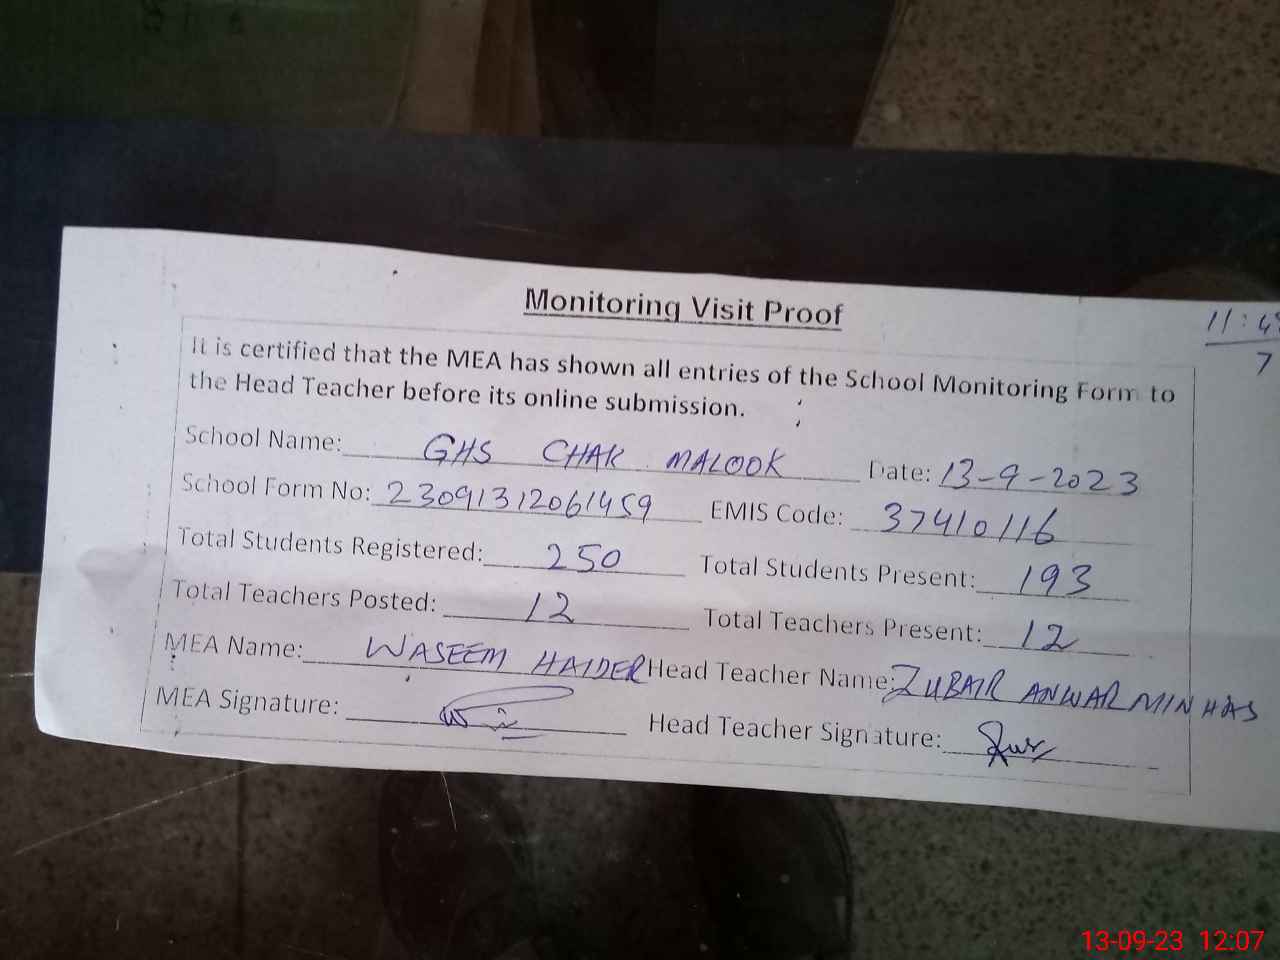 Monitoring Visit Proof
It is certified that the MEA has shown all entries of the School Monitoring Form to
the Head Teacher before its online submission.
School Name: GHS CHAK MALOOK Date: 13-9-2023
School Form No: 23091312061459 EMIS Code: 37410116
Total Students Registered: 250 Total Students Present: 193
Total Teachers Posted: 12 Total Teachers Present: 12
MEA Name: WASEEM HAIDER Head Teacher Name: ZUBAIR ANWAR MINHAS
MEA Signature: Head Teacher Signature:
7
13-09-23 12:07